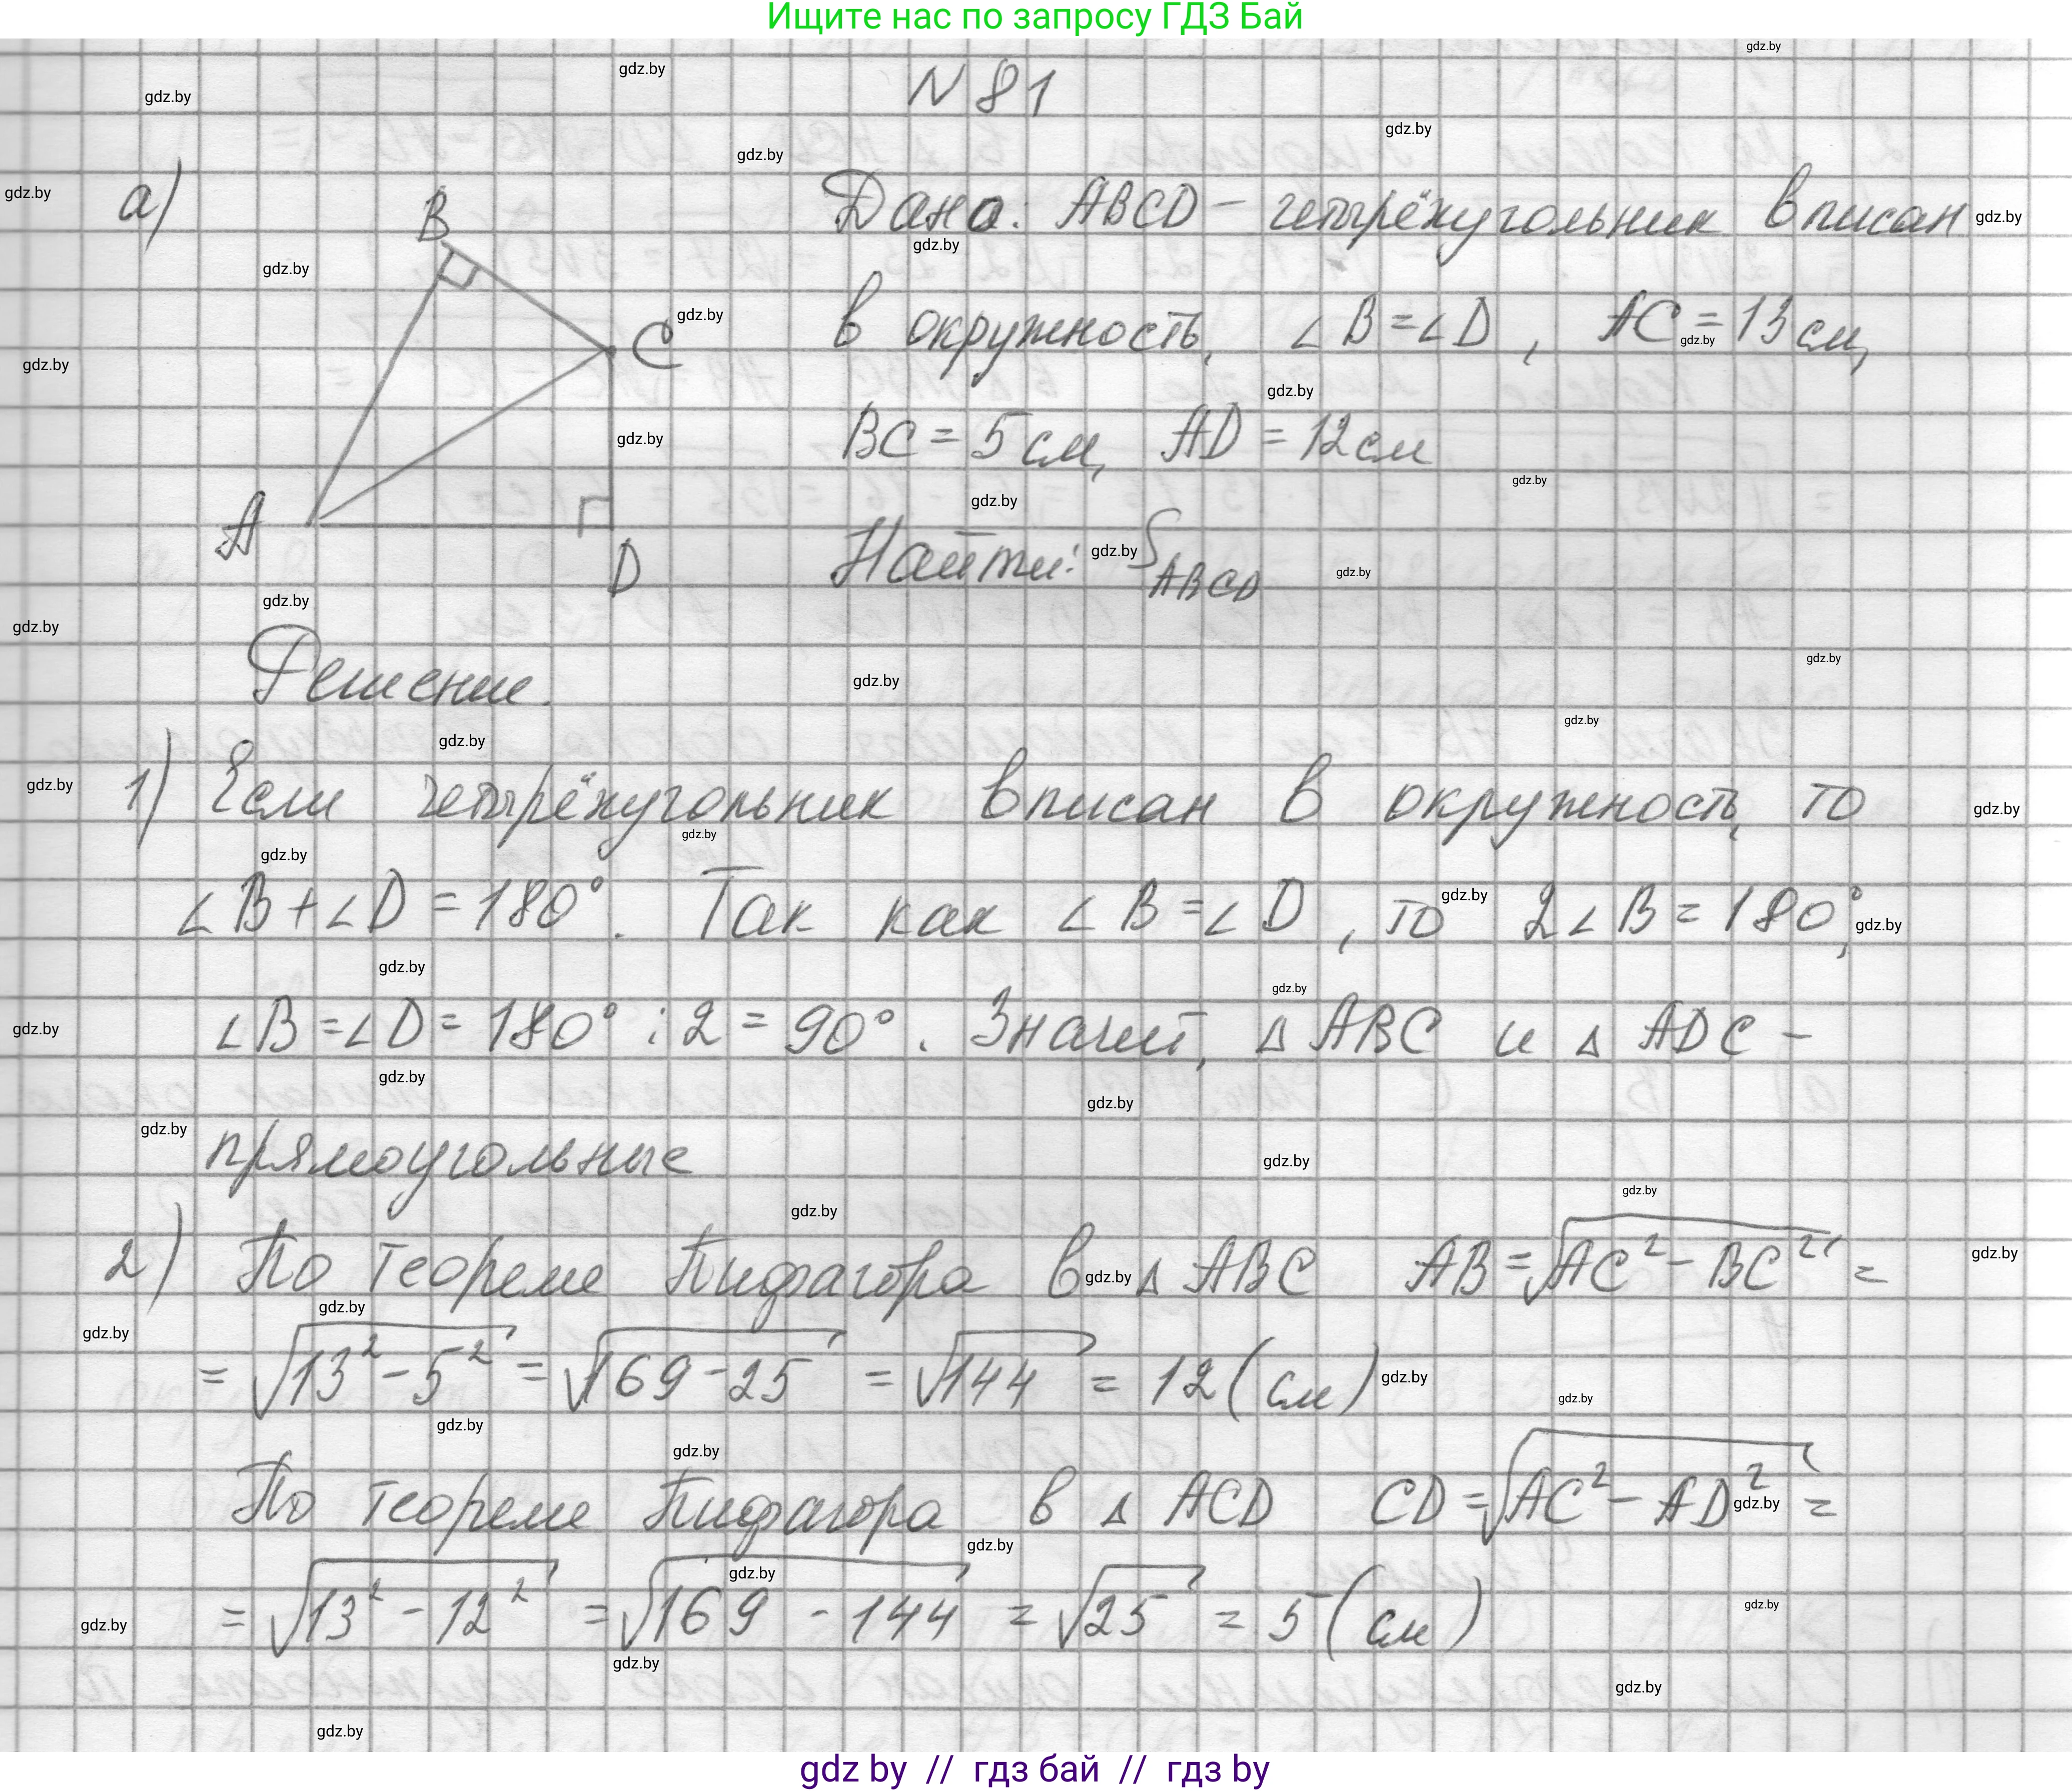 Ищите нас по запросу ГДЗ Бай
N 81
а)
B
C
A
D
Дано: ABCD – четырёхугольник вписан
в окружность, ∠B = ∠D, AC = 13 см,
BC = 5 см, AD = 12 см
Найти: S_ABCD
Решение.
1) Если четырёхугольник вписан в окружность, то
∠B + ∠D = 180°. Так как ∠B = ∠D, то 2∠B = 180°,
∠B = ∠D = 180° : 2 = 90°. Значит, △ABC и △ADC –
прямоугольные
2) По теореме Пифагора в △ABC AB = √(AC² – BC²) =
= √(13² – 5²) = √(169 – 25) = √144 = 12 (см)
По теореме Пифагора в △ACD CD = √(AC² – AD²) =
= √(13² – 12²) = √(169 – 144) = √25 = 5 (см)
gdz by // гдз бай // гдз by